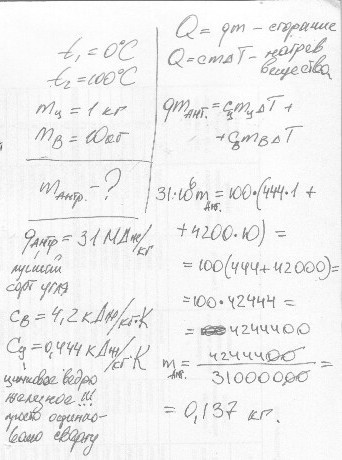 t₁ = 0°C
t₂ = 100°C
mц = 1 кг
mв = 10 кг
mантр. - ?
qантр = 31 МДж/кг
лучший
сорт угля
Cв = 4,2 кДж/кг·К
Cц = 0,444 кДж/кг·К
цинковое ведро
железное !!!
просто оцинко-
вано сверху
Q = qm - сгорание
Q = cmΔT - нагрев
вещества
qmант. = cцmцΔT +
+ cвmвΔT
31·10⁶mант. = 100·(444·1 +
+ 4200·10) =
= 100(444 + 42000) =
= 100·42444 =
= 4244400
mант. = 4244400/31000000 =
= 0,137 кг.